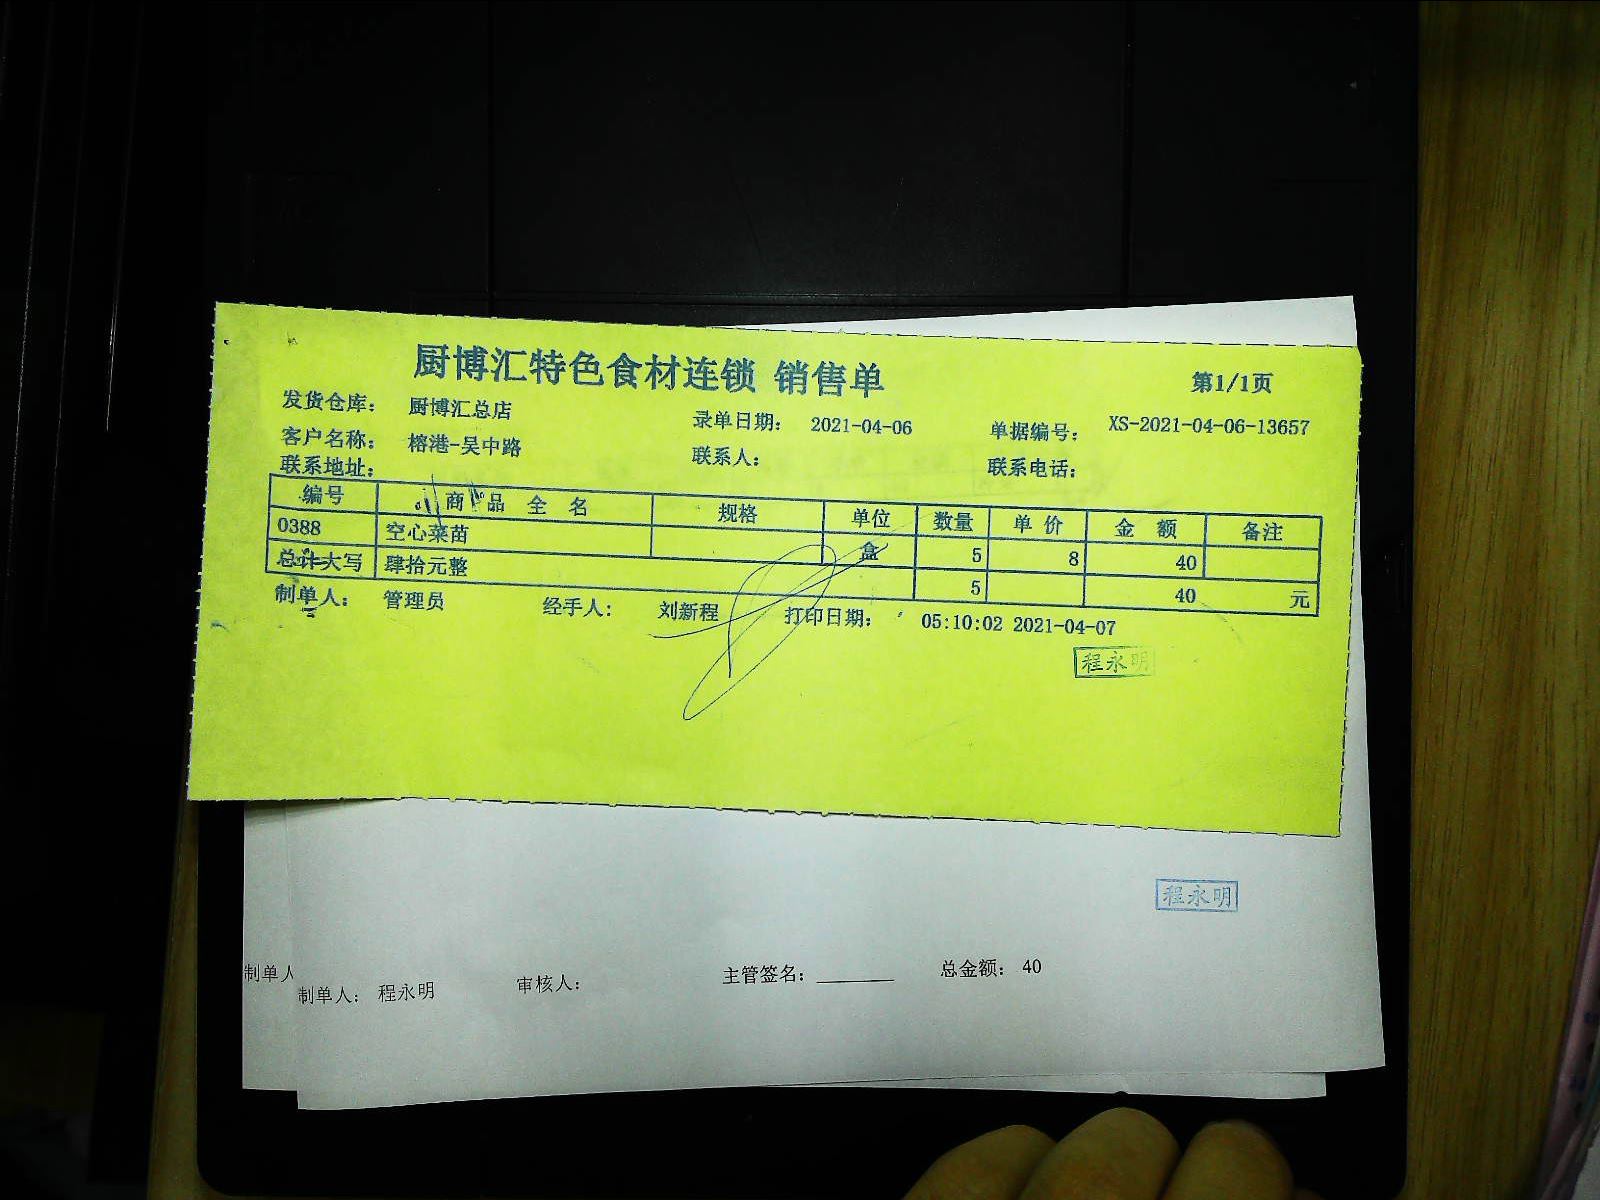 厨博汇特色食材连锁 销售单 第1/1页
发货仓库： 厨博汇总店 录单日期： 2021-04-06 单据编号： XS-2021-04-06-13657
客户名称： 榕港-吴中路 联系人： 联系电话：
联系地址：
编号 商品全名 规格 单位 数量 单价 金额 备注
0388 空心菜苗 盒 5 8 40
总计大写 肆拾元整 5 40 元
制单人： 管理员 经手人： 刘新程 打印日期： 05:10:02 2021-04-07
程永明
程永明
制单人
制单人： 程永明 审核人： 主管签名：________ 总金额： 40